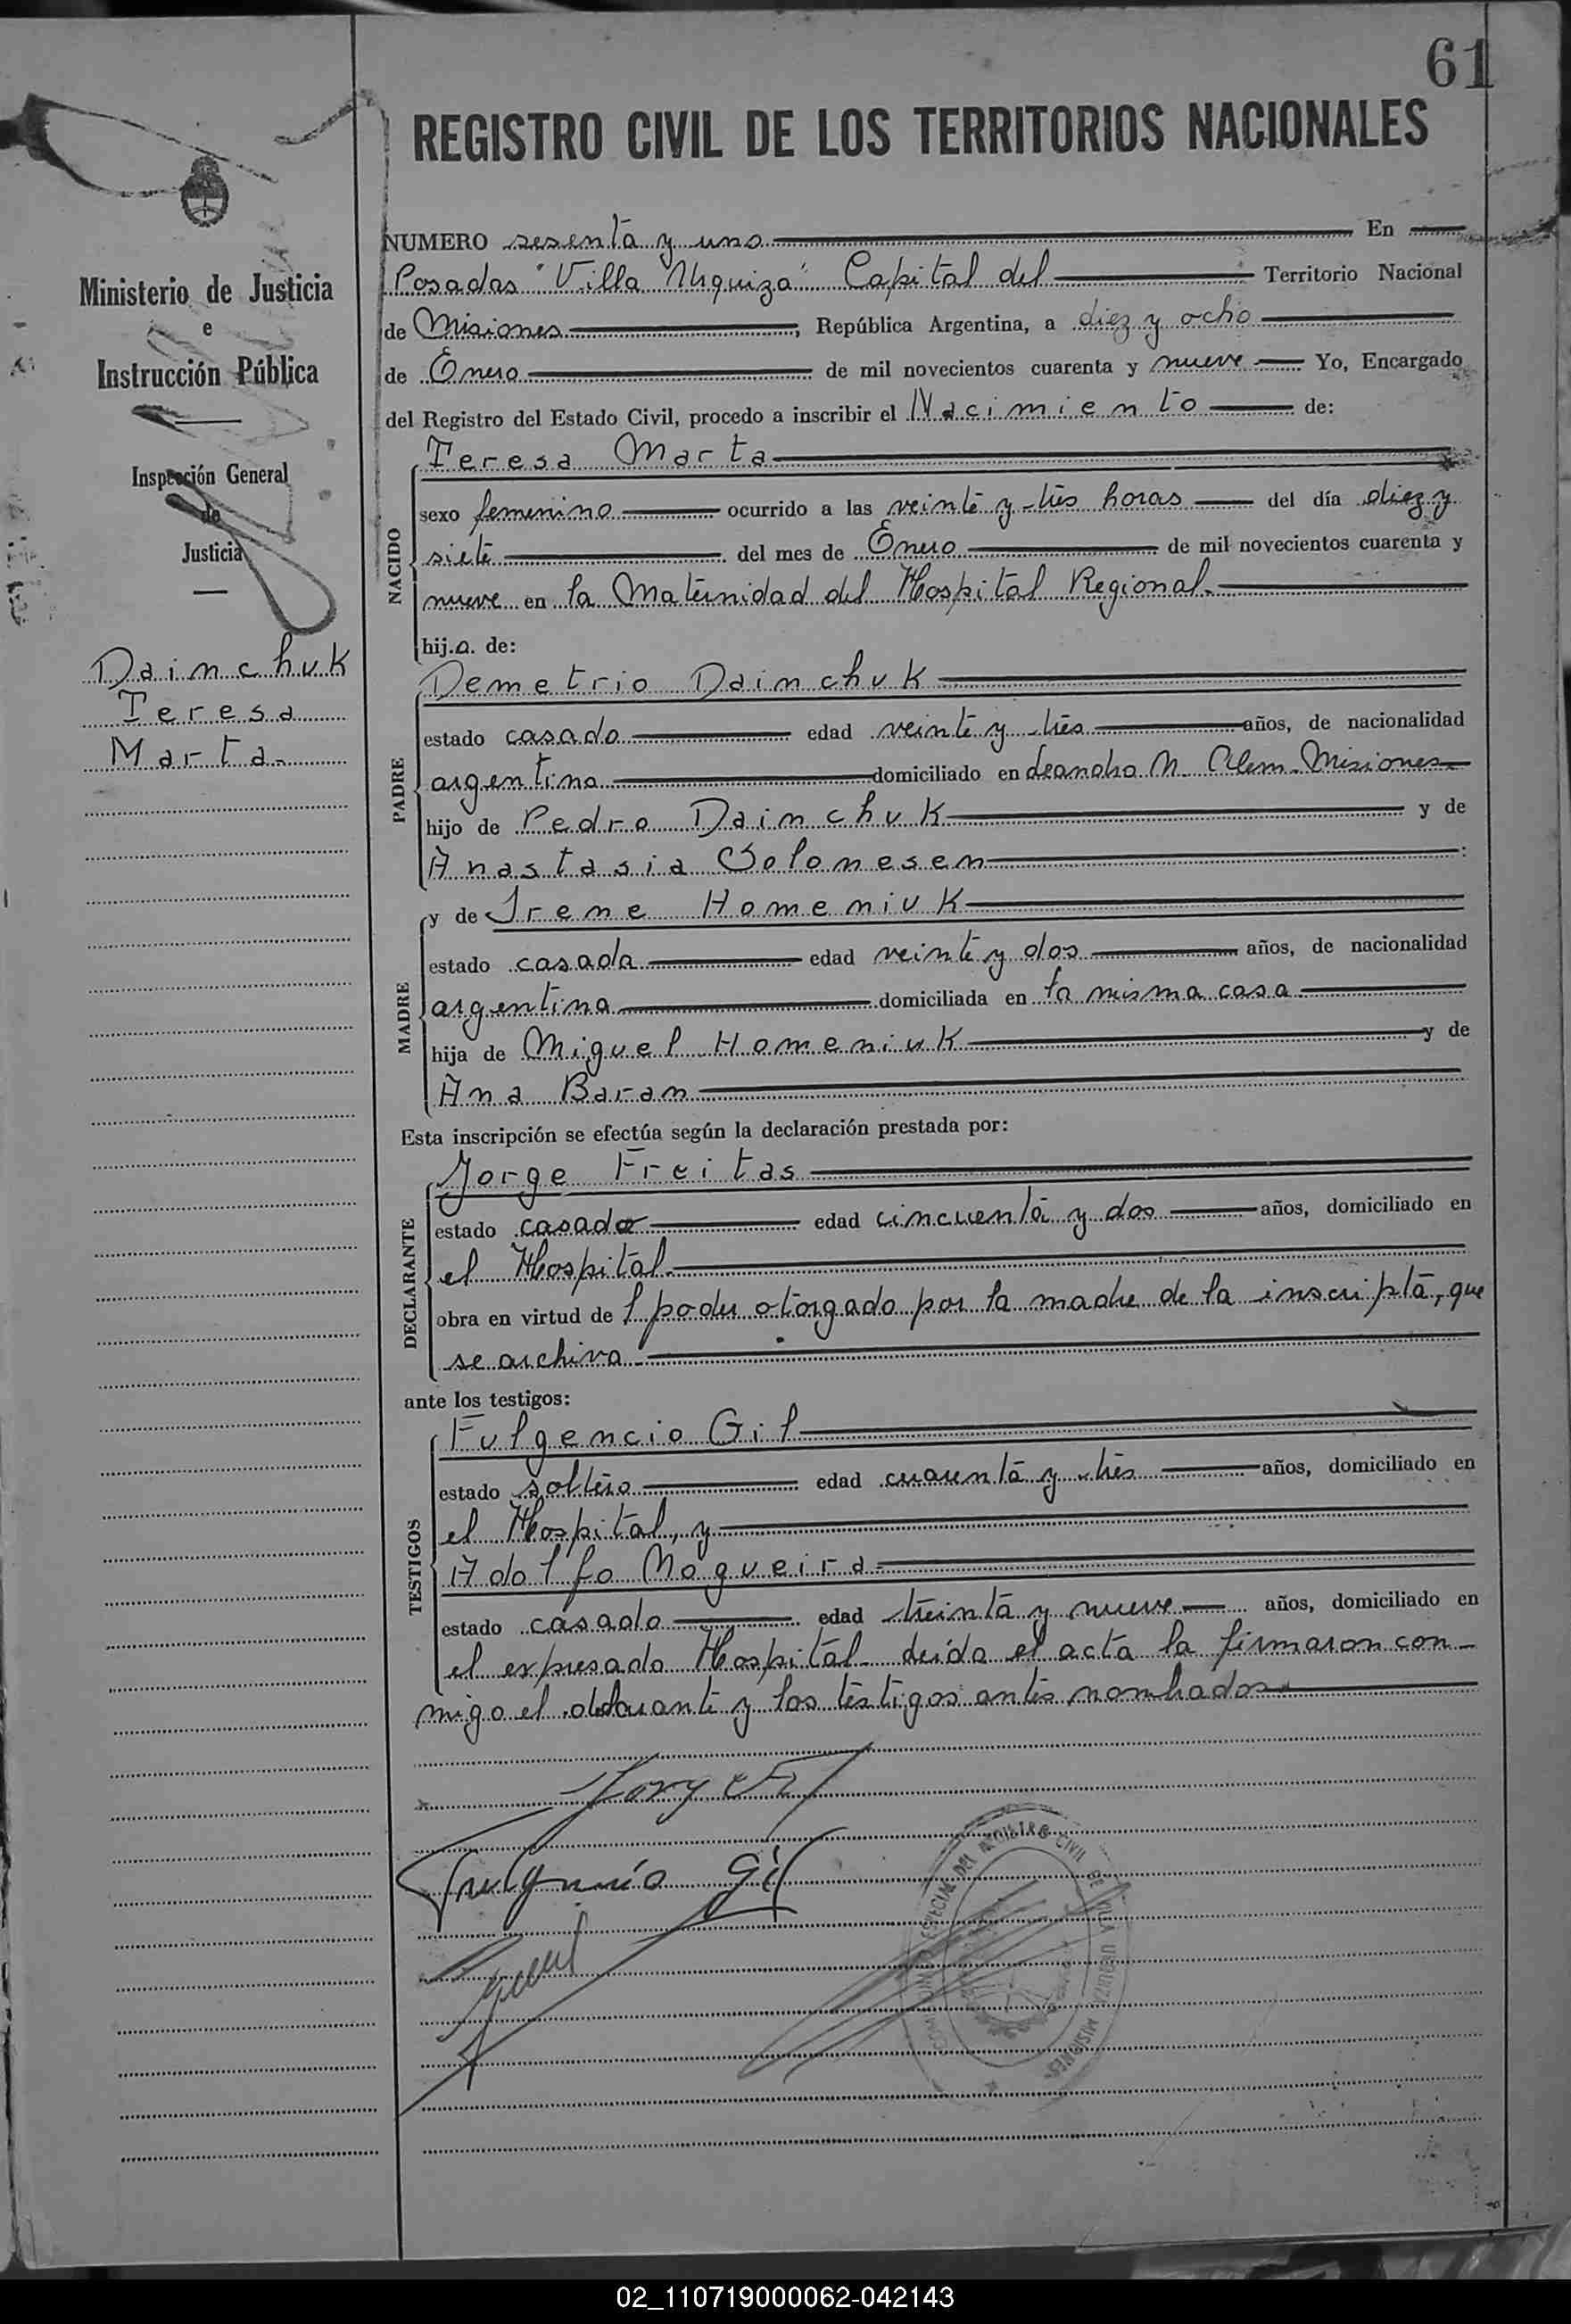 61
REGISTRO CIVIL DE LOS TERRITORIOS NACIONALES
Ministerio de Justicia
e
Instrucción Pública
Inspección General
de
Justicia
Dainchuk
Teresa
Marta.
NUMERO sesenta y uno En
Posadas "Villa Urquiza" Capital del Territorio Nacional
de Misiones, República Argentina, a diez y ocho
de Enero de mil novecientos cuarenta y nueve Yo, Encargado
del Registro del Estado Civil, procedo a inscribir el Nacimiento de:
NACIDO
Teresa Marta
sexo femenino ocurrido a las veinte y tres horas del día diez y
siete del mes de Enero de mil novecientos cuarenta y
nueve en la Maternidad del Hospital Regional.
hija de:
PADRE
Demetrio Dainchuk
estado casado edad veinte y tres años, de nacionalidad
argentina domiciliado en Leandro N. Alem. Misiones.
hijo de Pedro Dainchuk y de
Anastasia Solonesen:
MADRE
y de Irene Homeniuk
estado casada edad veinte y dos años, de nacionalidad
argentina domiciliada en la misma casa.
hija de Miguel Homeniuk y de
Ana Baran
Esta inscripción se efectúa según la declaración prestada por:
DECLARANTE
Jorge Freitas
estado casado edad cincuenta y dos años, domiciliado en
el Hospital.
obra en virtud del poder otorgado por la madre de la inscripta, que
se archiva.
ante los testigos:
TESTIGOS
Fulgencio Gil
estado soltero edad cuarenta y tres años, domiciliado en
el Hospital, y
Adolfo Nogueira.
estado casado edad treinta y nueve años, domiciliado en
el expresado Hospital. Leída el acta la firmaron con-
migo el declarante y los testigos antes nombrados.
Jorge
Fulgencio Gil
ESPECIAL DEL REGISTRO CIVIL DE VILLA URQUIZA MISIONES
02_110719000062-042143